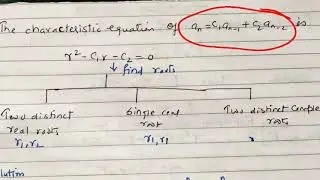 The characteristic equation of aₙ=C₁aₙ₋₁+C₂aₙ₋₂ is
r²-C₁r-C₂=0
↓ find roots
Two distinct real roots
r₁,r₂
Single real root
r₁,r₁
Two distinct Complex roots
r